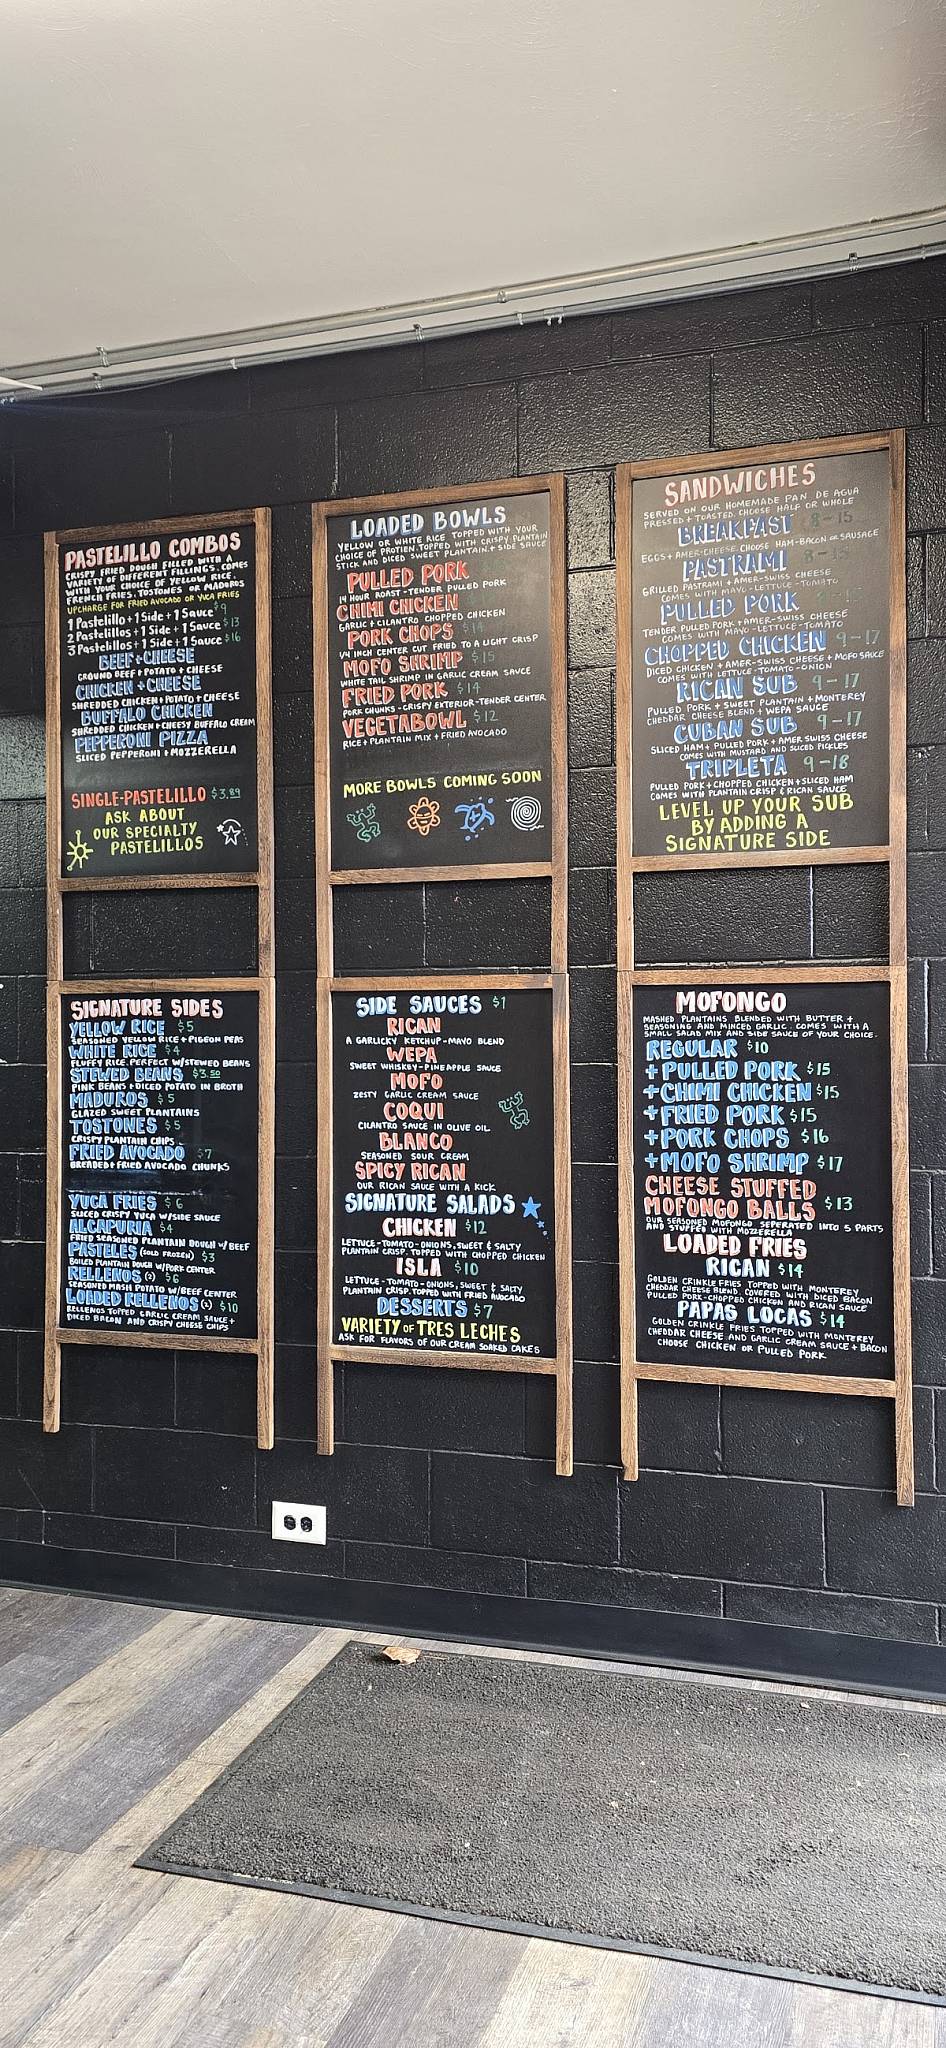 PASTELILLO COMBOS
CRISPY FRIED DOUGH FILLED WITH A
VARIETY OF DIFFERENT FILLINGS. COMES
WITH YOUR CHOICE OF YELLOW RICE,
FRENCH FRIES, TOSTONES OR MADUROS
UPCHARGE FOR FRIED AVOCADO OR YUCA FRIES
1 Pastelillo + 1 Side + 1 Sauce $9
2 Pastelillos + 1 Side + 1 Sauce $13
3 Pastelillos + 1 Side + 1 Sauce $16
BEEF + CHEESE
GROUND BEEF + POTATO + CHEESE
CHICKEN + CHEESE
SHREDDED CHICKEN + POTATO + CHEESE
BUFFALO CHICKEN
SHREDDED CHICKEN + CHEESY BUFFALO CREAM
PEPPERONI PIZZA
SLICED PEPPERONI + MOZZERELLA
SINGLE-PASTELILLO $3.89
ASK ABOUT
OUR SPECIALTY
PASTELILLOS
LOADED BOWLS
YELLOW OR WHITE RICE TOPPED WITH YOUR
CHOICE OF PROTIEN. TOPPED WITH CRISPY PLANTAIN
STICK AND DICED SWEET PLANTAIN + SIDE SAUCE
PULLED PORK
14 HOUR ROAST - TENDER PULLED PORK
CHIMI CHICKEN
GARLIC + CILANTRO CHOPPED CHICKEN
PORK CHOPS $14
1/4 INCH CENTER CUT FRIED TO A LIGHT CRISP
MOFO SHRIMP $15
WHITE TAIL SHRIMP IN GARLIC CREAM SAUCE
FRIED PORK $14
PORK CHUNKS - CRISPY EXTERIOR - TENDER CENTER
VEGETABOWL $12
RICE + PLANTAIN MIX + FRIED AVOCADO
MORE BOWLS COMING SOON
SANDWICHES
SERVED ON OUR HOMEMADE PAN DE AGUA
PRESSED + TOASTED. CHOOSE HALF OR WHOLE
BREAKFAST 8-15
EGGS + AMER-CHEESE. CHOOSE HAM-BACON OR SAUSAGE
PASTRAMI
GRILLED PASTRAMI + AMER-SWISS CHEESE
COMES WITH MAYO-LETTUCE-TOMATO
PULLED PORK
TENDER PULLED PORK + AMER-SWISS CHEESE
COMES WITH MAYO-LETTUCE-TOMATO
CHOPPED CHICKEN 9-17
DICED CHICKEN + AMER-SWISS CHEESE + MOFO SAUCE
COMES WITH LETTUCE-TOMATO-ONION
RICAN SUB 9-17
PULLED PORK + SWEET PLANTAIN + MONTEREY
CHEDDAR CHEESE BLEND + WEPA SAUCE
CUBAN SUB 9-17
SLICED HAM + PULLED PORK + AMER SWISS CHEESE
COMES WITH MUSTARD AND SLICED PICKLES
TRIPLETA 9-18
PULLED PORK + CHOPPED CHICKEN + SLICED HAM
COMES WITH PLANTAIN CRISP & RICAN SAUCE
LEVEL UP YOUR SUB
BY ADDING A
SIGNATURE SIDE
SIGNATURE SIDES
YELLOW RICE $5
SEASONED YELLOW RICE + PIGEON PEAS
WHITE RICE $4
FLUFFY RICE. PERFECT W/STEWED BEANS
STEWED BEANS $3.50
PINK BEANS + DICED POTATO IN BROTH
MADUROS $5
GLAZED SWEET PLANTAINS
TOSTONES $5
CRISPY PLANTAIN CHIPS
FRIED AVOCADO $7
BREADED + FRIED AVOCADO CHUNKS
YUCA FRIES $6
SLICED CRISPY YUCA W/SIDE SAUCE
ALCAPURIA $4
FRIED SEASONED PLANTAIN DOUGH W/BEEF
PASTELES (SOLD FROZEN) $3
BOILED PLANTAIN DOUGH W/PORK CENTER
RELLENOS (2) $6
SEASONED MASH POTATO W/BEEF CENTER
LOADED RELLENOS (2) $10
RELLENOS TOPPED GARLIC CREAM SAUCE +
DICED BACON AND CRISPY CHEESE CHIPS
SIDE SAUCES $1
RICAN
A GARLICKY KETCHUP-MAYO BLEND
WEPA
SWEET WHISKEY-PINEAPPLE SAUCE
MOFO
ZESTY GARLIC CREAM SAUCE
COQUI
CILANTRO SAUCE IN OLIVE OIL
BLANCO
SEASONED SOUR CREAM
SPICY RICAN
OUR RICAN SAUCE WITH A KICK
SIGNATURE SALADS
CHICKEN $12
LETTUCE-TOMATO-ONIONS, SWEET & SALTY
PLANTAIN CRISP. TOPPED WITH CHOPPED CHICKEN
ISLA $10
LETTUCE-TOMATO-ONIONS, SWEET & SALTY
PLANTAIN CRISP. TOPPED WITH FRIED AVOCADO
DESSERTS $7
VARIETY OF TRES LECHES
ASK FOR FLAVORS OF OUR CREAM SOAKED CAKES
MOFONGO
MASHED PLANTAINS BLENDED WITH BUTTER +
SEASONING AND MINCED GARLIC. COMES WITH A
SMALL SALAD MIX AND SIDE SAUCE OF YOUR CHOICE.
REGULAR $10
+ PULLED PORK $15
+ CHIMI CHICKEN $15
+ FRIED PORK $15
+ PORK CHOPS $16
+ MOFO SHRIMP $17
CHEESE STUFFED
MOFONGO BALLS $13
OUR SEASONED MOFONGO SEPERATED INTO 5 PARTS
AND STUFFED WITH MOZZERELLA
LOADED FRIES
RICAN $14
GOLDEN CRINKLE FRIES TOPPED WITH MONTEREY
CHEDDAR CHEESE BLEND. COVERED WITH DICED BACON
PULLED PORK-CHOPPED CHICKEN AND RICAN SAUCE
PAPAS LOCAS $14
GOLDEN CRINKLE FRIES TOPPED WITH MONTEREY
CHEDDAR CHEESE AND GARLIC CREAM SAUCE + BACON
CHOOSE CHICKEN OR PULLED PORK